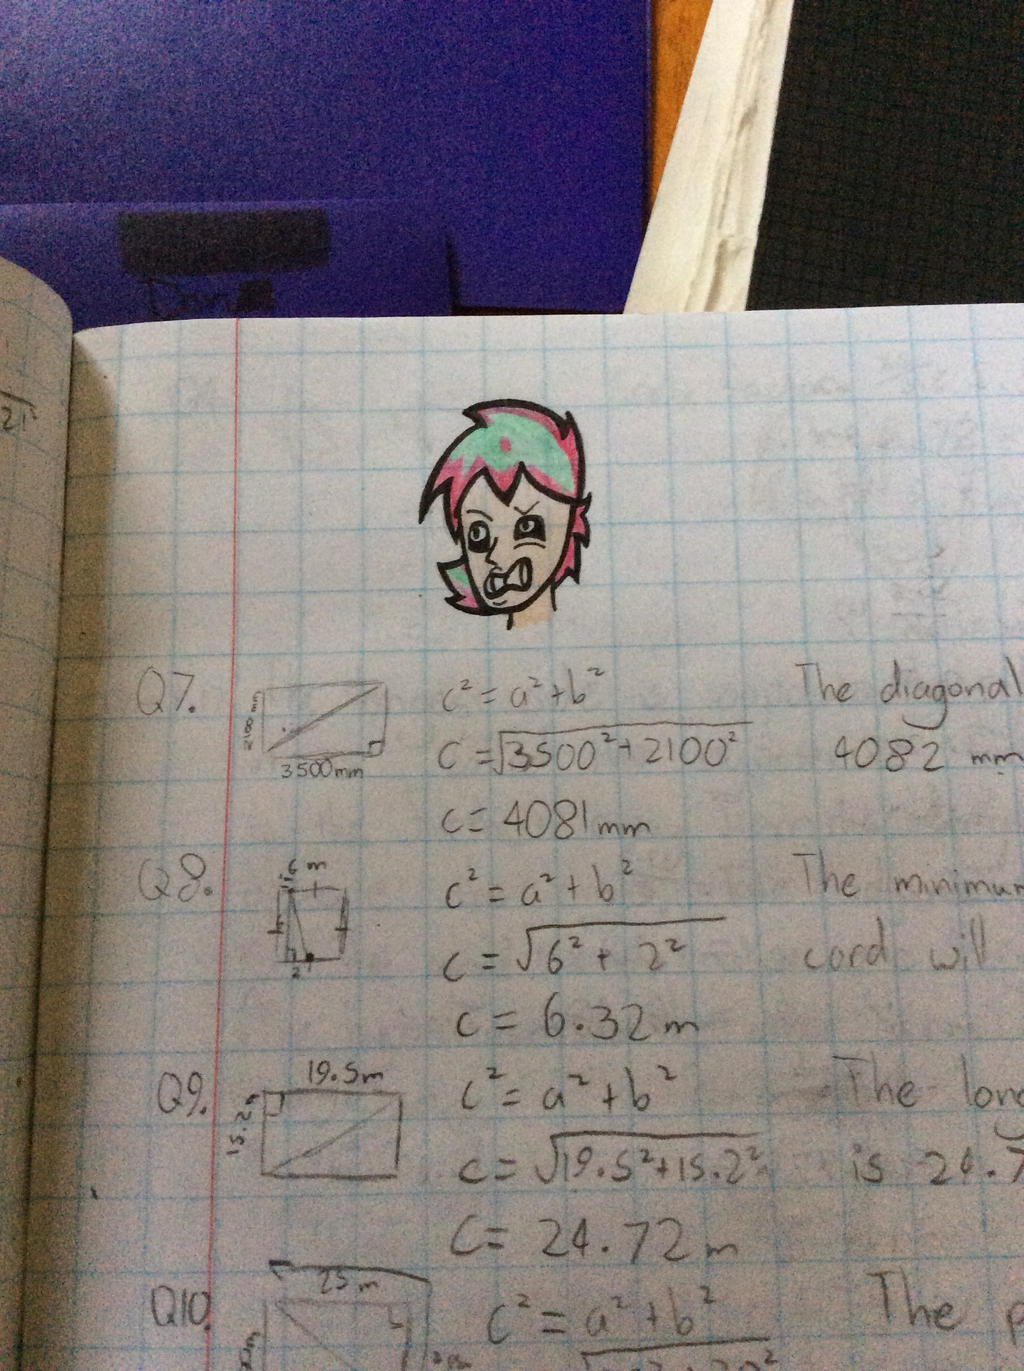 21
Q7.
2100 mm
3500mm
c² = a² + b²
C = √3500² + 2100²
c = 4081 mm
The diagonal
4082 mm
Q8.
6 m
2
c² = a² + b²
c = √6² + 2²
c = 6.32 m
The minimum
cord will
Q9.
19.5m
15.2m
c² = a² + b²
c = √19.5² + 15.2²
C = 24.72 m
The long
is 24.7
Q10.
25 m
c² = a² + b²
The p